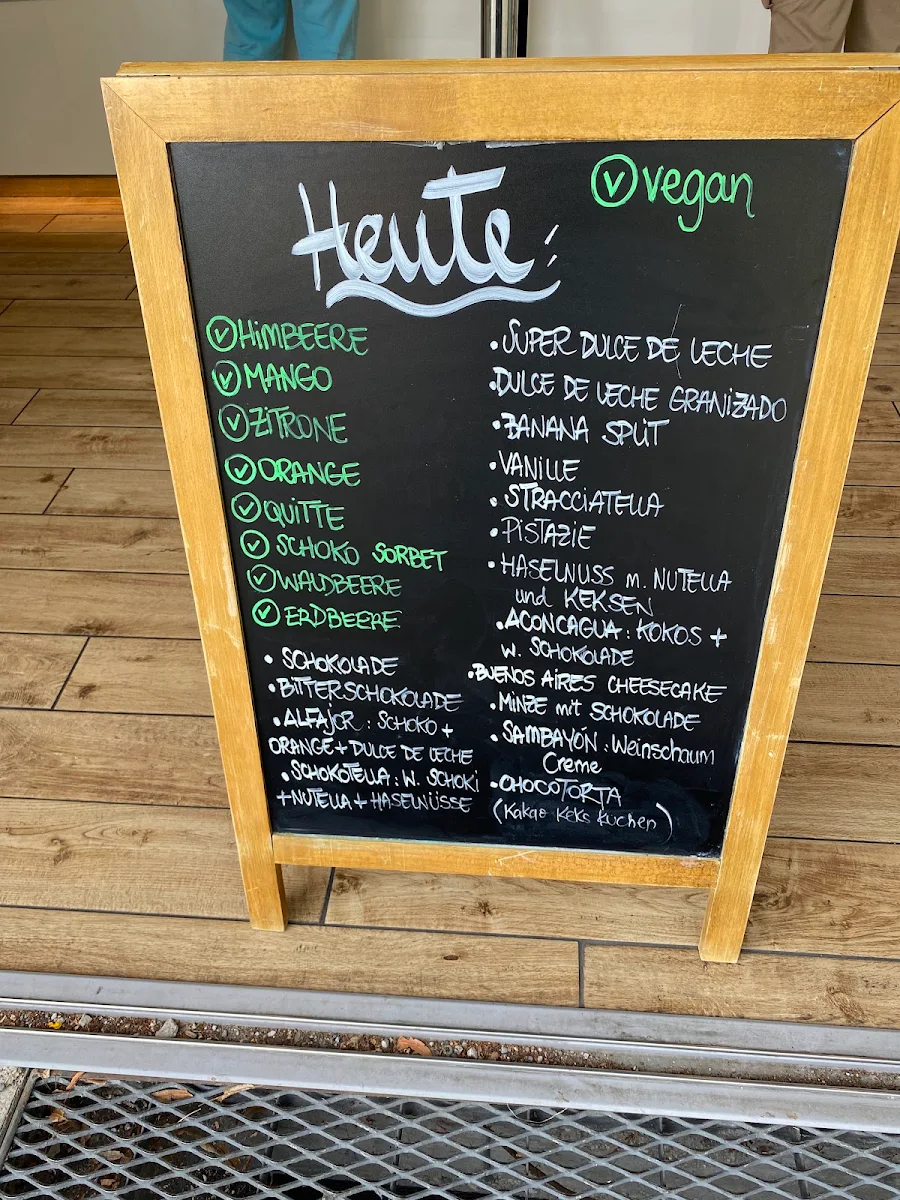 Heute:
ⓥ vegan
HIMBEERE
MANGO
ZITRONE
ORANGE
QUITTE
SCHOKO SORBET
WALDBEERE
ERDBEERE
• SCHOKOLADE
• BITTERSCHOKOLADE
• ALFAJOR: SCHOKO +
ORANGE + DULCE DE LECHE
• SCHOKOTELLA: W. SCHOKI
+ NUTELLA + HASELNÜSSE
• SUPER DULCE DE LECHE
• DULCE DE LECHE GRANIZADO
• BANANA SPLIT
• VANILLE
• STRACCIATELLA
• PISTAZIE
• HASELNUSS m. NUTELLA
und KEKSEN
• ACONCAGUA: KOKOS +
W. SCHOKOLADE
• BUENOS AIRES CHEESECAKE
• MINZE mit SCHOKOLADE
• SAMBAYÓN: Weinschaum
Creme
• CHOCOTORTA
(Kakao Keks Kuchen)